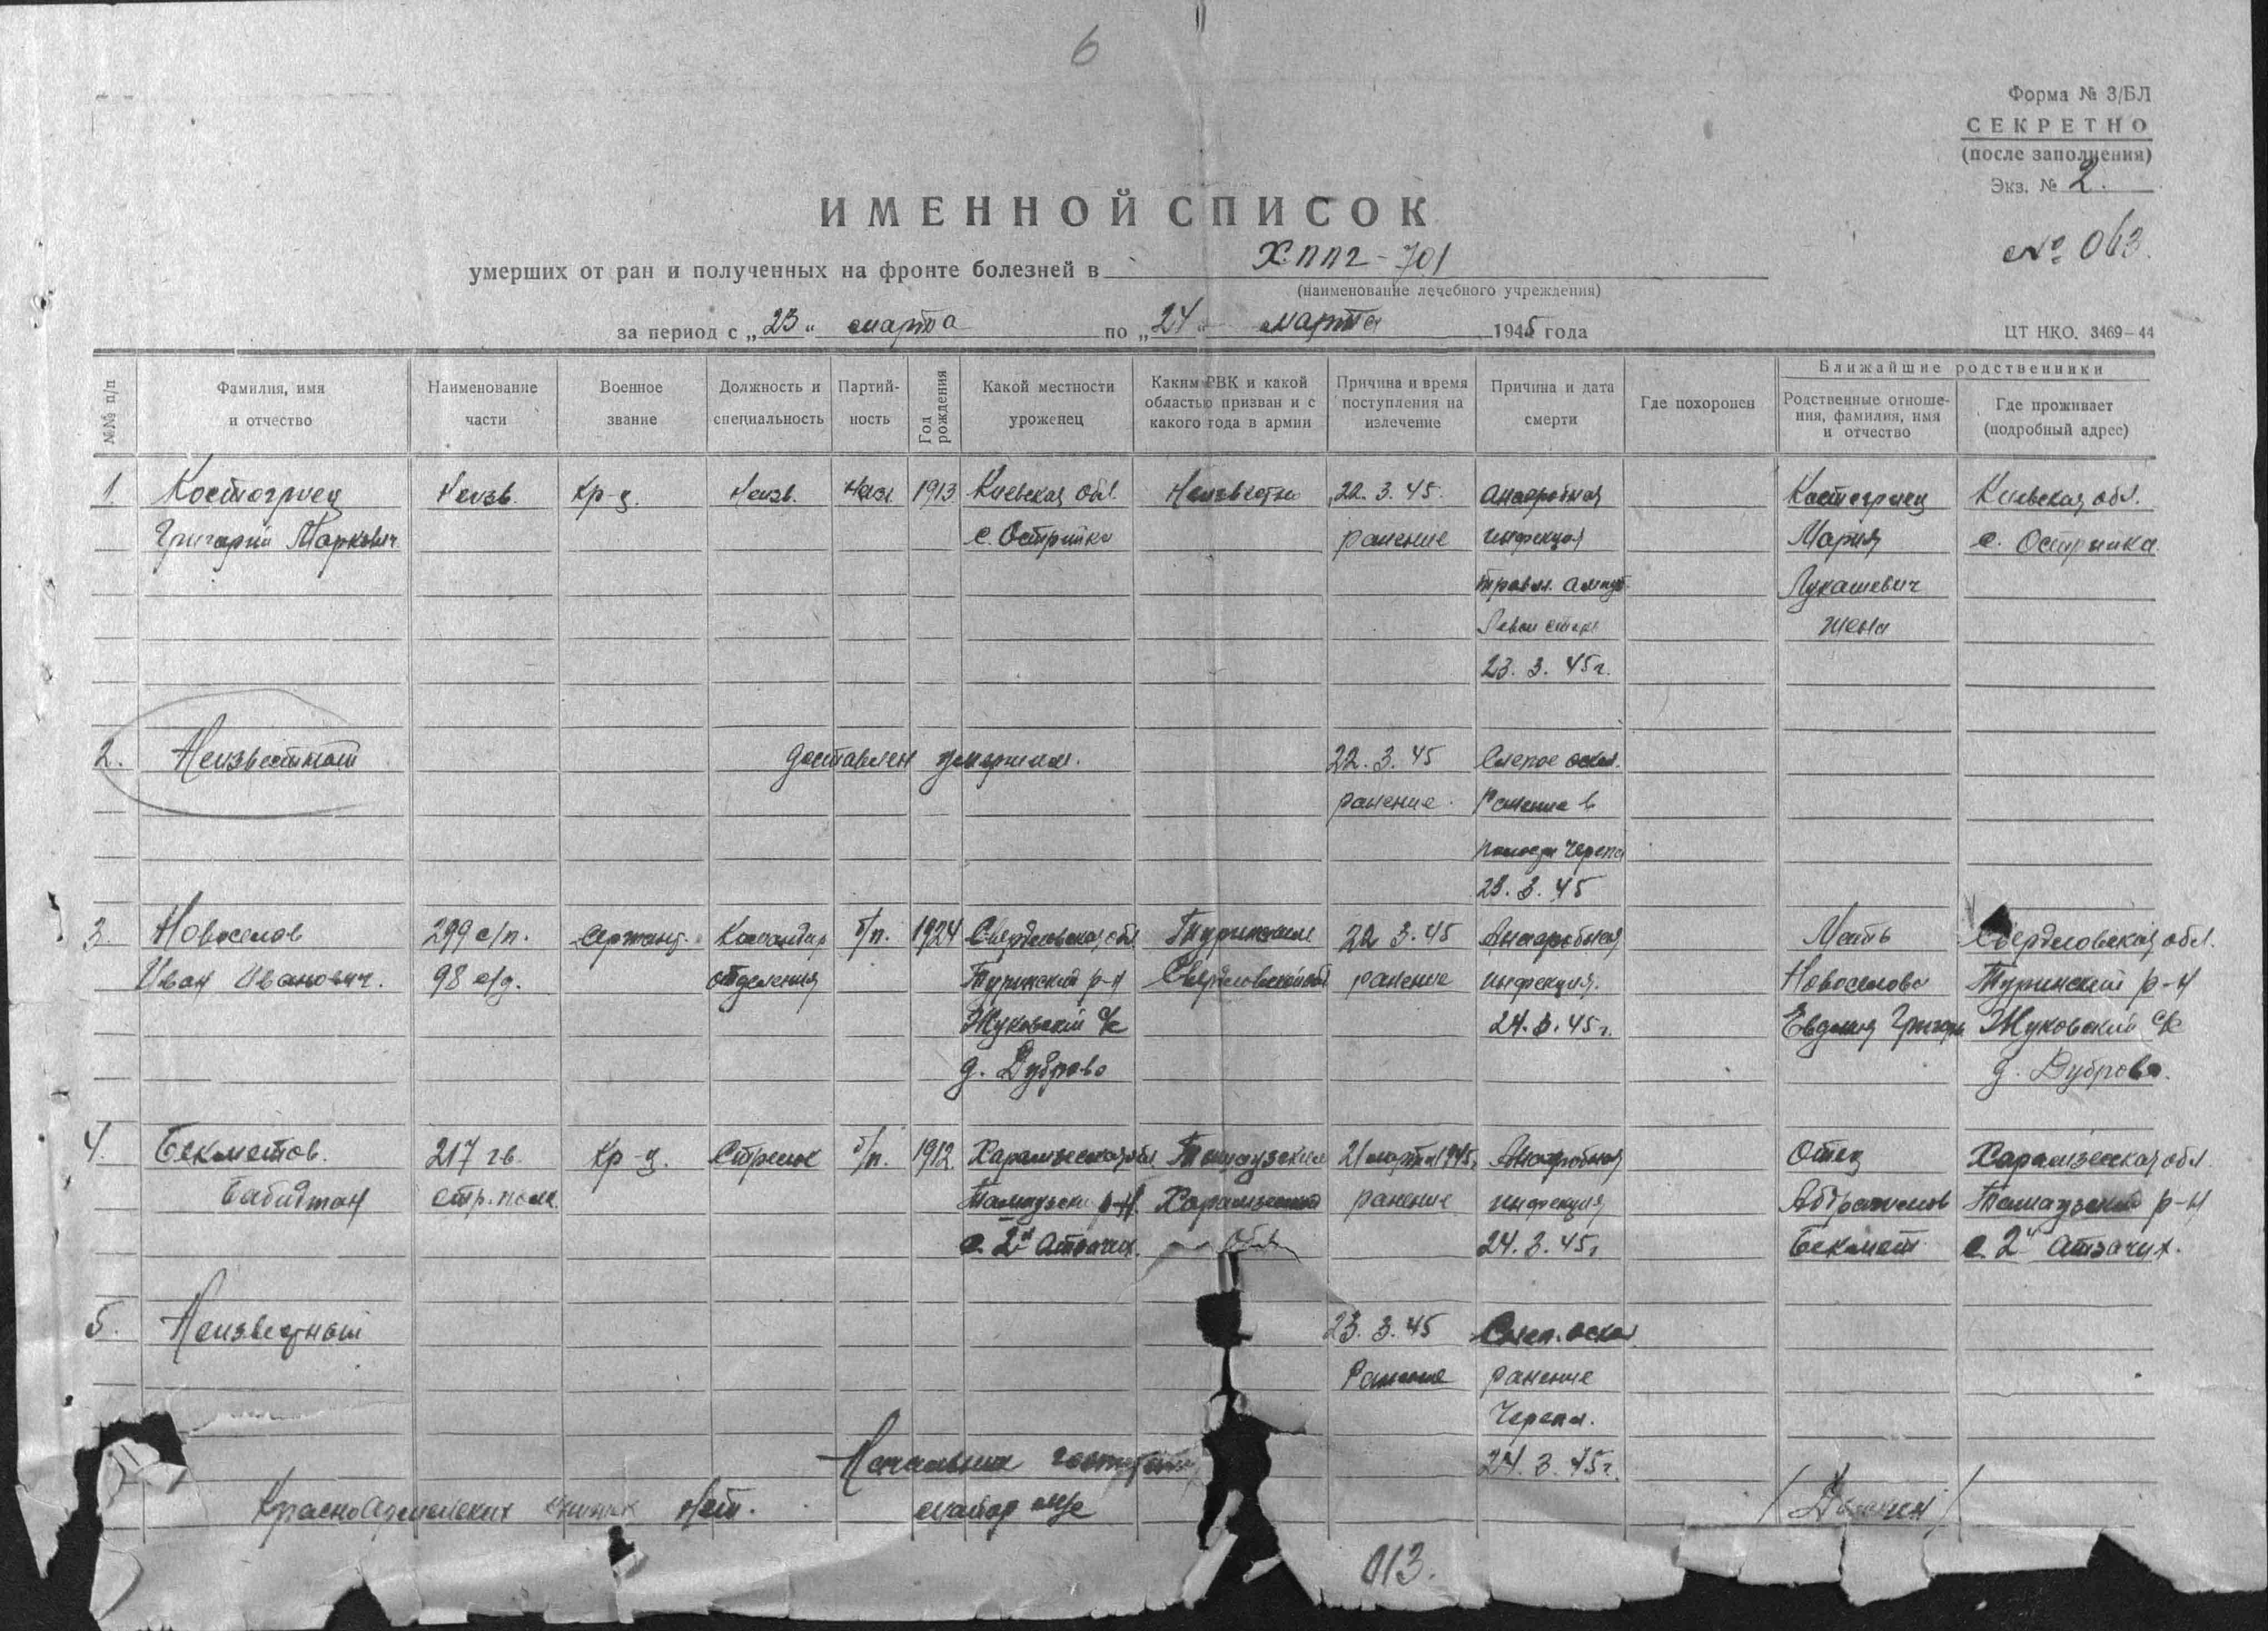 6
Форма № 3/БЛ
СЕКРЕТНО
(после заполнения)
Экз. № 2.
№ 063.
ИМЕННОЙ СПИСОК
умерших от ран и полученных на фронте болезней в ХППГ-701
(наименование лечебного учреждения)
за период с „23" марта по „24" марта 1945 года
ЦТ НКО. 3469—44
№№ п/п
Фамилия, имя и отчество
Наименование части
Военное звание
Должность и специальность
Партийность
Год рождения
Какой местности уроженец
Каким РВК и какой областью призван и с какого года в армии
Причина и время поступления на излечение
Причина и дата смерти
Где похоронен
Ближайшие родственники
Родственные отношения, фамилия, имя и отчество
Где проживает (подробный адрес)
1. Костогриец Неизв. Кр-ц. Неизв. Неизв. 1913 Киевская обл. Неизвестно 22.3.45. Анаэробная Костогриец Киевская обл.
Григорий Маркович с. Остринка ранение инфекция Мария с. Остринка
травм. ампут. Лукашевич
Левой стопы жена
23.3.45г.
2. Неизвестный доставлен умершим. 22.3.45 Слепое оскол.
ранение. Ранение в
черепа
23.3.45
3. Новоселов 299 с/п. Сержант. Командир б/п. 1924 Свердловская обл Туринским 22 3.45 Анаэробная Мать Свердловская обл.
Иван Иванович. 98 с/д. отделения Туринский р-н Свердловской обл. ранение инфекция. Новоселова Туринский р-н
Жуковский с/с 24.3.45г. Евдокия Григор Жуковский с/с
д. Дуброво д. Дуброво.
4. Бекметов. 217 гв. Кр-ц. Стрелок б/п. 1912. Харазмская обл Ташаузским 21 марта 1945г Анаэробная Отец Харамзская обл.
Бабиджан стр. полк. Ташаузский р-н. Харамзской ранение инфекция Абдрахманов Ташаузский р-н
с. 2й Обл 24.3.45г Бекмет с. 2й
5. Неизвестный 23.3.45 Слеп. оскол
Ранение ранение
Черепа.
24.3.45г.
Начальник госпиталя
Красноармейских книжек Нет. майор м/с
113.